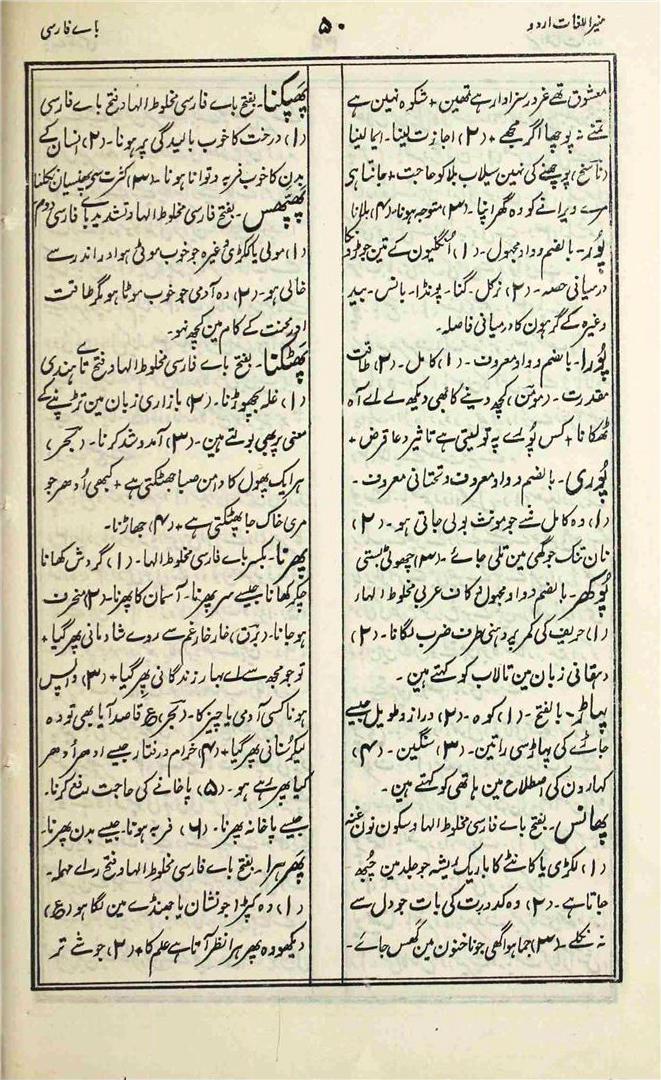 منیر اللغات اردو
۵۰
باے فارسی
معشوق تھے غرور سزاوار ہے تمھین + شکوہ نہین ہے
تمنے نہ پوچھا اگر مجھے + (۲) اجازت لینا۔ ایما لینا
(ناسخ) پوچھنے کی نہین سیلاب بلا کو حاجت + جانتا ہی
مرے ویرانے کو وہ گھر اپنا۔ (۳) متوجہ ہونا۔ (۴) بلانا
پُور۔ بالضم و واو مجہول۔ (۱) اُنگلیون کے تین جوڑونکا
درمیانی حصہ۔ (۲) نرکل۔ گنا۔ پونڈا۔ بانس۔ بید
وغیرہ کے گرہون کا درمیانی فاصلہ۔
پُورا۔ بالضم و واو معروف۔ (۱) کامل۔ (۲) طاقت
مقدرت۔ (مومن) کچھ دینے کا بھی دیکھ لے اے آہ
ٹھکانا + کس پُورے پہ تو لیتی ہے تاثیر دعا قرض +
پُوری۔ بالضم و واو معروف و تحتانی معروف۔
(۱) وہ کامل شے جو مونث بولی جاتی ہو۔ (۲)
نان تنک جو گھی مین تلی جائے۔ (۳) چھوٹی بستی
پُوکھر۔ بالضم و واو مجہول و کاف عربی مخلوط الہا
(۱) حریف کی کمر پر دہنی طرف ضرب لگانا۔ (۲)
دہقانی زبان مین تالاب کو کہتے ہین۔
پہاڑ۔ بالفتح۔ (۱) کوہ۔ (۲) دراز و طویل جیسے
جاڑے کی پہاڑ سی راتین۔ (۳) سنگین۔ (۴)
کہارون کی اصطلاح مین ہاتھی کو کہتے ہین۔
پھانس۔ بفتح باے فارسی مخلوط الہا و سکون نون غنہ
(۱) لکڑی یا کانٹے کا باریک ریشہ جو جلد مین چُبھ
جاتا ہے۔ (۲) وہ کدورت کی بات جو دل سے
نہ نکلے۔ (۳) جما ہوا گھی جو ناخنون مین گھس جائے۔
پھپکنا۔ بفتح باے فارسی مخلوط الہا و فتح باے فارسی
(۱) درخت کا خوب بالیدگی پر ہونا۔ (۲) انسان کے
بدن کا خوب فربہ و توانا ہونا۔ (۳) کثرت سے پھنسیان نکلنا
پھپھس۔ بفتح فارسی مخلوط الہا و تشدید باے فارسی دوم
(۱) مولی یا ککڑی وغیرہ جو خوب موٹی ہو اور اندر سے
خالی ہو۔ (۲) وہ آدمی جو خوب موٹا ہو مگر طاقت
اور محنت کے کام مین کچھ نہو۔
پھٹکنا۔ بفتح باے فارسی مخلوط الہا و فتح تاے ہندی
(۱) غلہ پچھوڑنا۔ (۲) بازاری زبان مین تڑپنے کے
معنی پر بھی بولتے ہین۔ (۳) آمد و شد کرنا۔ (بحر)
ہر ایک پھول کا دامن صبا جھٹکتی ہے + کبھی اُودھر جو
مری خاک جا پھٹکتی ہے + (۴) جھاڑنا۔
پھرنا۔ بکسر باے فارسی مخلوط الہا۔ (۱) گردش کھانا
چکر کھانا جیسے سر پھرنا۔ آسمان کا پھرنا۔ (۲) منحرف
ہو جانا۔ (برق) خار خار غم سے روے شادمانی پھر گیا +
تو جو مجھ سے اے بہار زندگانی پھر گیا + (۳) واپس
ہونا کسی آدمی یا چیز کا۔ (بحر) (ع) قاصد آیا بھی تو وہ
لیکر سُنانی پھر گیا + (۴) خرام و رفتار جیسے ادھر اُودھر
کیا پھر رہے ہو۔ (۵) پاخانے کی حاجت رفع کرنا۔
جیسے پاخانہ پھرنا۔ (۶) فربہ ہونا۔ جیسے بدن پھرنا۔
پھرہرا۔ بفتح باے فارسی مخلوط الہا و فتح راے مہملہ۔
(۱) وہ کپڑا جو نشان یا جھنڈے مین لگا ہو (ع)
دیکھو وہ پھرہرا نظر آتا ہے علم کا + (۲) جو شے تر